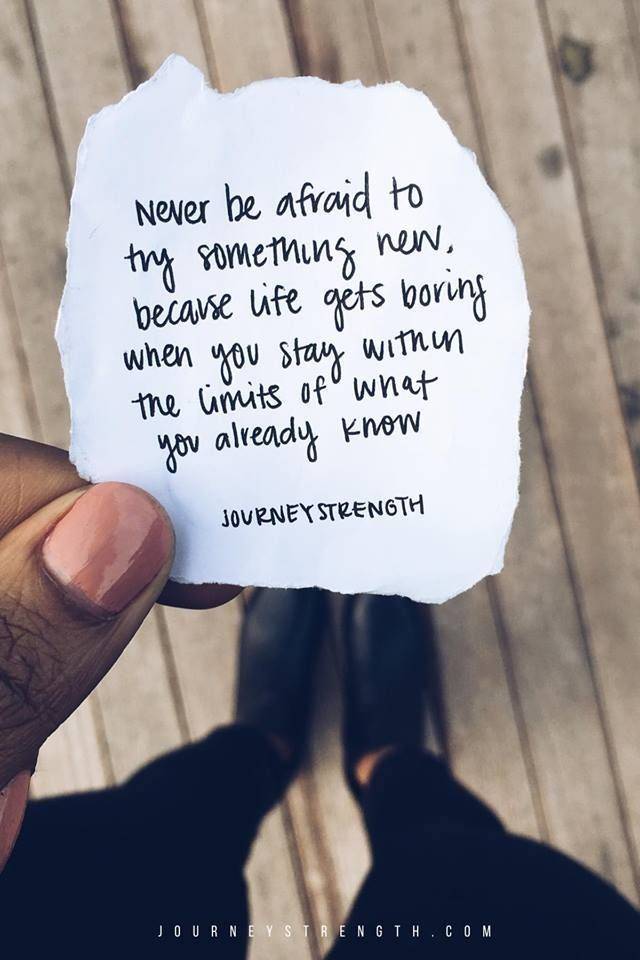 Never be afraid to
try something new,
because life gets boring
when you stay within
the limits of what
you already know
JOURNEYSTRENGTH
JOURNEYSTRENGTH.COM